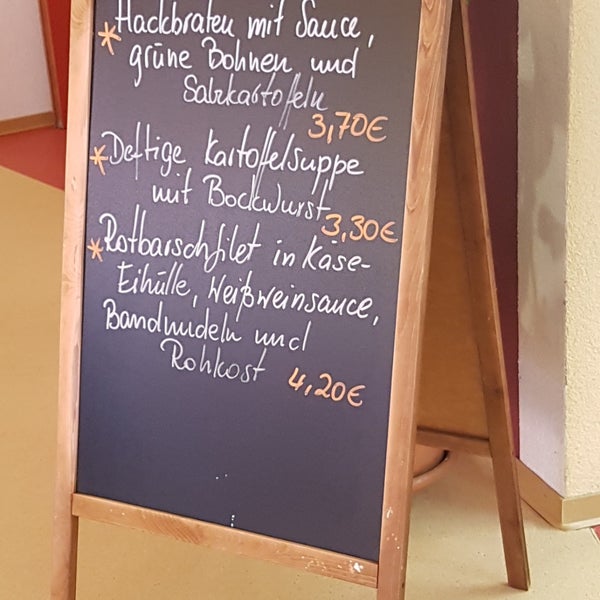 * Hackbraten mit Sauce,
grüne Bohnen und
Salzkartoffeln
3,70€
* Deftige Kartoffelsuppe
mit Bockwurst
3,30€
* Rotbarschfilet in Käse-
Eihülle, Weißweinsauce,
Bandnudeln und
Rohkost 4,20€